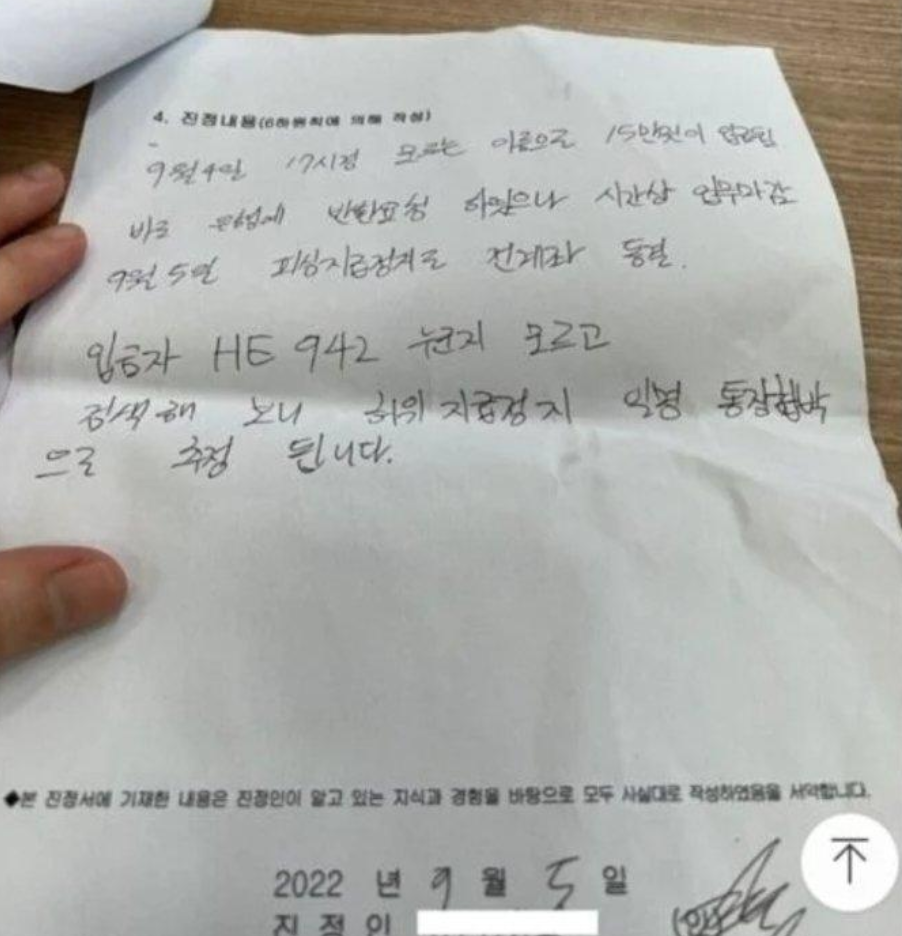 4. 진정내용(6하원칙에 의해 작성)
9월 4일 17시경 모르는 이름으로 15만원이 입금됨
바로 은행에 반환요청 하였으나 시간상 업무마감
9월 5일 피싱지급정지로 전계좌 동결.
입금자 HE 942 누군지 모르고
검색해 보니 허위 지급정지 일명 통장협박
으로 추정 됩니다.
◆본 진정서에 기재한 내용은 진정인이 알고 있는 지식과 경험을 바탕으로 모두 사실대로 작성하였음을 서약합니다.
2022 년 9 월 5 일
진 정 인 (인)